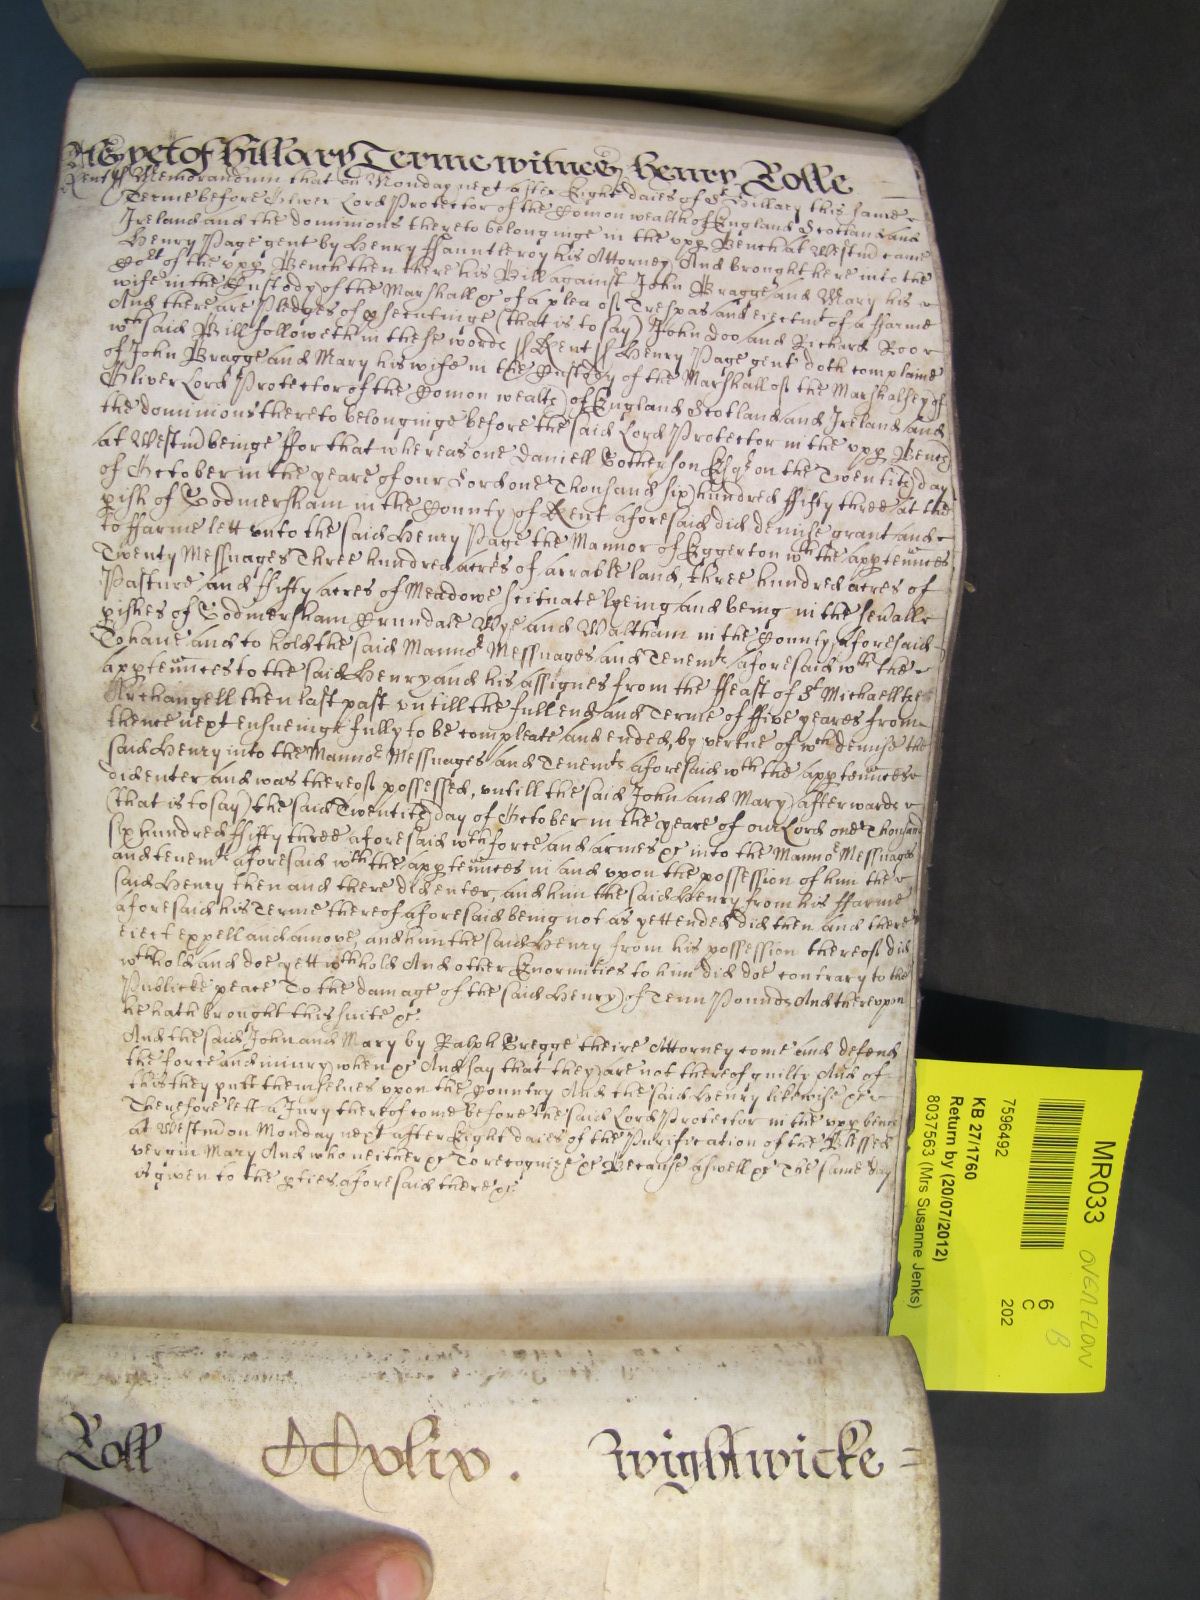 As yet of Hillary Terme witnes Henry Rolle
Kent ss Memorandum that on Monday next after Eight daies of St Hillary this same
Terme before Oliver Lord Protector of the Comon wealth of England Scotland and
Ireland and the dominions thereto belonginge in the upp Bench at Westm came
Henry Page gent by Henry ffauntleroy his Attorney And brought here into the
Cort of the upp Bench then there his Bill against John Bragge and Mary his
wife in the Custody of the Marshall &c of a plea of Trespas and eiectmt of a ffarme
And there are Pledges of psecutinge (that is to say) John Doo and Richard Roo
wch said Bill followeth in these words ss Kent ss Henry Page gent doth complaine
of John Bragge and Mary his wife in the Custody of the Marshall of the Marshalsey of
Oliver Lord Protector of the Comon wealth of England Scotland and Ireland and
the dominions thereto belonginge before the said Lord Protector in the upp Bench
at Westm beinge ffor that whereas one Daniell Gotherson Esqr on the Twentith day
of October in the yeare of our Lord one Thousand six hundred ffifty three at the
pish of Godmersham in the County of Kent aforesaid did demise grant and
to ffarme lett unto the said Henry Page the Mannor of Eggerton wth the apptennces
Twenty Messuages Three hundred acres of arrable land, three hundred acres of
Pasture and ffifty acres of Meadowe scituate lyeing and being in the sevall
pishes of Godmersham Crundale Wye and Waltham in the County aforesaid
To have and to hold the said Mannor Messuages and Tenemts aforesaid wth the
apptennces to the said Henry and his assignes from the ffeast of St Michaell the
Archangell then last past untill the full end and Terme of ffive yeares from
thence next ensueinge fully to be compleate and ended, by vertue of wch demise the
said Henry into the Mannor Messuages and Tenemts aforesaid wth the apptennces
did enter and was thereof possessed, untill the said John and Mary afterwards
(that is to say) the said Twentith day of October in the yeare of our Lord one Thousand
six hundred ffifty three aforesaid wth force and armes &c into the Mannor Messuages
and tenemts aforesaid wth the apptennces in and upon the possession of him the
said Henry then and there did enter, and him the said Henry from his ffarme
aforesaid his Terme thereof aforesaid being not as yett ended did then and there
eiect expell and amove, and him the said Henry from his possession thereof did
wthhold and doe yett wthhold And other Enormities to him did doe contrary to the
Publicke peace To the damage of the said Henry of Tenn Pounds And thereupon
he hath brought this suite &c.
And the said John and Mary by Ralph Gregge theire Attorney come and defend
the force and iniury when &c And say that they are not thereof guilty And of
this they putt themselves upon the Country And the said Henry likewise &c
Therefore lett a Jury thereof come before the said Lord Protector in the upp bench
at Westm on Monday next after Eight daies of the Purification of the Blessed
vergin Mary And who neither &c To recognize &c Because aswell &c The same day
is given to the pties aforesaid there &c
Roll CCxlix. Wightwicke
MR033
OVERFLOW
B
6
C
202
7596492
KB 27/1760
Return by (20/07/2012)
8037563 (Mrs Susanne Jenks)